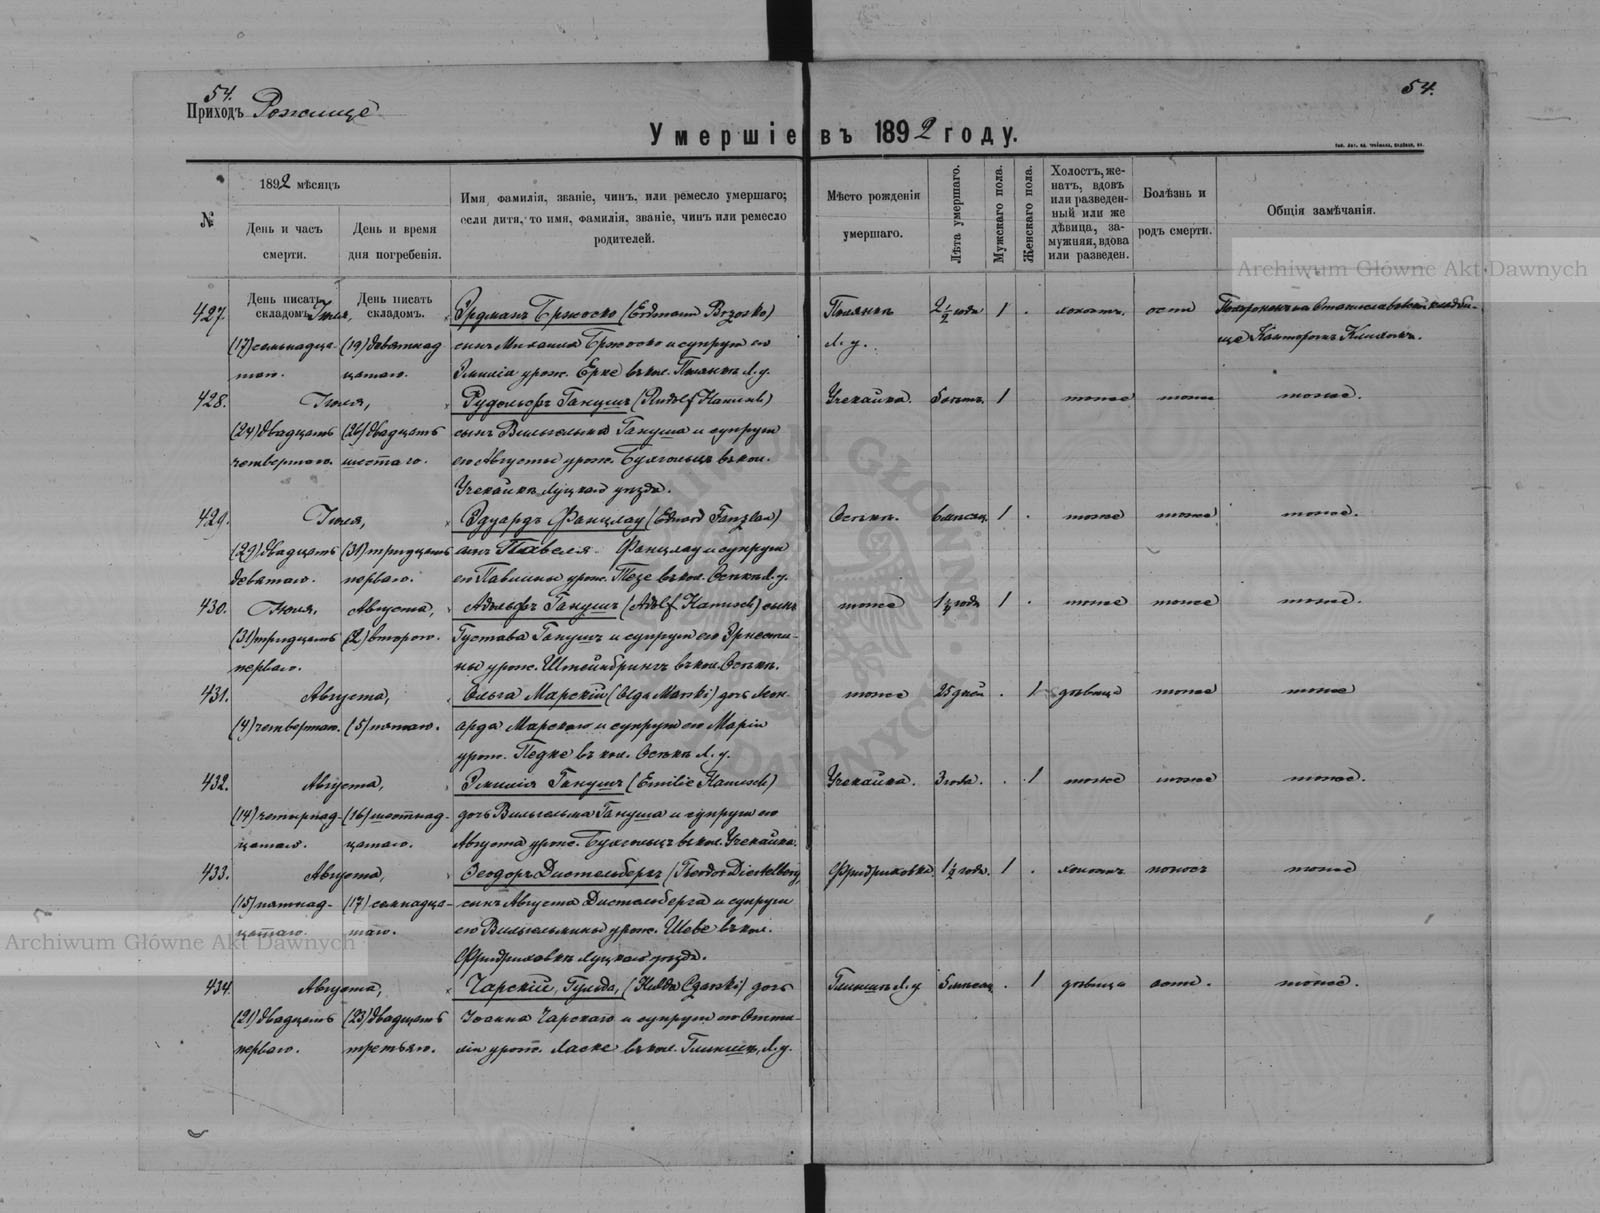 54.
54.
Приходъ Рожище
Умершіе въ 1892 году.
№
1892 мѣсяцъ
День и часъ смерти.
День и время дня погребенія.
Имя, фамилія, званіе, чинъ, или ремесло умершаго;
если дитя, то имя, фамилія, званіе, чинъ или ремесло
родителей.
Мѣсто рожденія
умершаго.
Лѣта умершаго.
Мужскаго пола.
Женскаго пола.
Холостъ, же-
натъ, вдовъ
или разведен-
ный или же
дѣвица, за-
мужняя, вдова
или разведен.
Болѣзнь и
родъ смерти.
Общія замѣчанія.
Archiwum Główne Akt Dawnych
День писать складомъ.
День писать складомъ.
427. Іюля, Эрдманъ Бржоско (Erdmann Brzosko) Полянкѣ 2 1/2 года 1 . холостъ. оспа
(17) семьнадца- (19) девятнад- сынъ Михаила Бржоско и супруги его Л. у. ще Канторомъ
таго. цатаго. Эмиліи урож. Ерке въ кол. Полянкѣ Л. у.
428. Іюля, Рудольфъ Ганушъ (Rudolf Hanusch) Учекайка. 5 лѣтъ 1 тоже тоже тоже.
(24) двадцать (26) двадцать сынъ Вильгельма Гануша и супруги
четвертаго. шестаго. его Августы урож. Бухгольцъ въ кол.
Учекайкѣ Луцкаго уѣзда.
429. Іюля, Эдуардъ Фанцлау (Eduard Fanzlau) Осѣкѣ. 6 мѣсяц. 1 . тоже тоже тоже.
(29) двадцать (31) тридцать сынъ Павла Фанцлау и супруги
девятаго. перваго. его Павлины урож. Тезе въ кол. Осѣкѣ Л. у.
430. Іюля, Августа, Адольфъ Ганушъ (Adolf Hanusch) сынъ тоже 1 1/4 года 1 . тоже тоже тоже.
(31) тридцать (2) втораго. Густава Ганушъ и супруги его Эрнести-
перваго. ны урож. Штейнбрингъ въ кол. Осѣкѣ.
431. Августа, Ольга Марскій (Olga Marski) дочь Леон- тоже 25 дней . 1 дѣвица тоже тоже
(4) четвертаго. (5) пятаго. арда Марскаго и супруги его Маріи
урож. Педке въ кол. Осѣкѣ Л. у.
432. Августа, Эмилія Ганушъ (Emilie Hanusch) Учекайка. 3 года. . 1 тоже тоже тоже.
(14) четырнад- (16) шестнад- дочь Вильгельма Гануша и супруги его
цатаго. цатаго. Августы урож. Бухгольцъ въ кол. Учекайкѣ.
433. Августа, Теодоръ Дистельбергъ (Theodor Diestelberg) Фридриховка. 1 1/2 года. 1 . холостъ поносъ тоже
(15) пятнад- (17) семнадца- сынъ Августа Дистельберга и супруги
цатаго. таго. его Вильгельмины урож. Шеве въ кол.
Фридриховкѣ Луцкаго уѣзда.
Archiwum Główne Akt Dawnych
434. Августа, Чарскій, Гульда, (Hulda Czarski) дочь Глинищъ Л. у 5 мѣсяц. . 1 дѣвица оспа. тоже.
(21) двадцать (23) двадцать Іоанна Чарскаго и супруги его Отти-
перваго. третьяго. ліи урож. Ласке въ кол. Глинищъ, Л. у.
ARCHIWUM GŁÓWNE
DAWNYCH